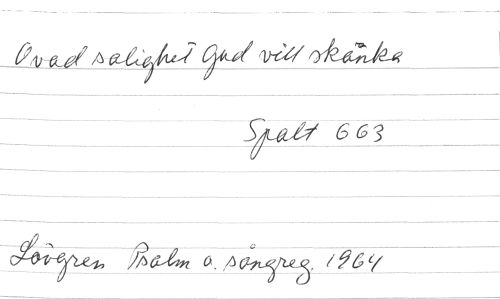 O vad salighet Gud vill skänka
Spalt 663
Lövgren Psalm o. sångreg. 1964